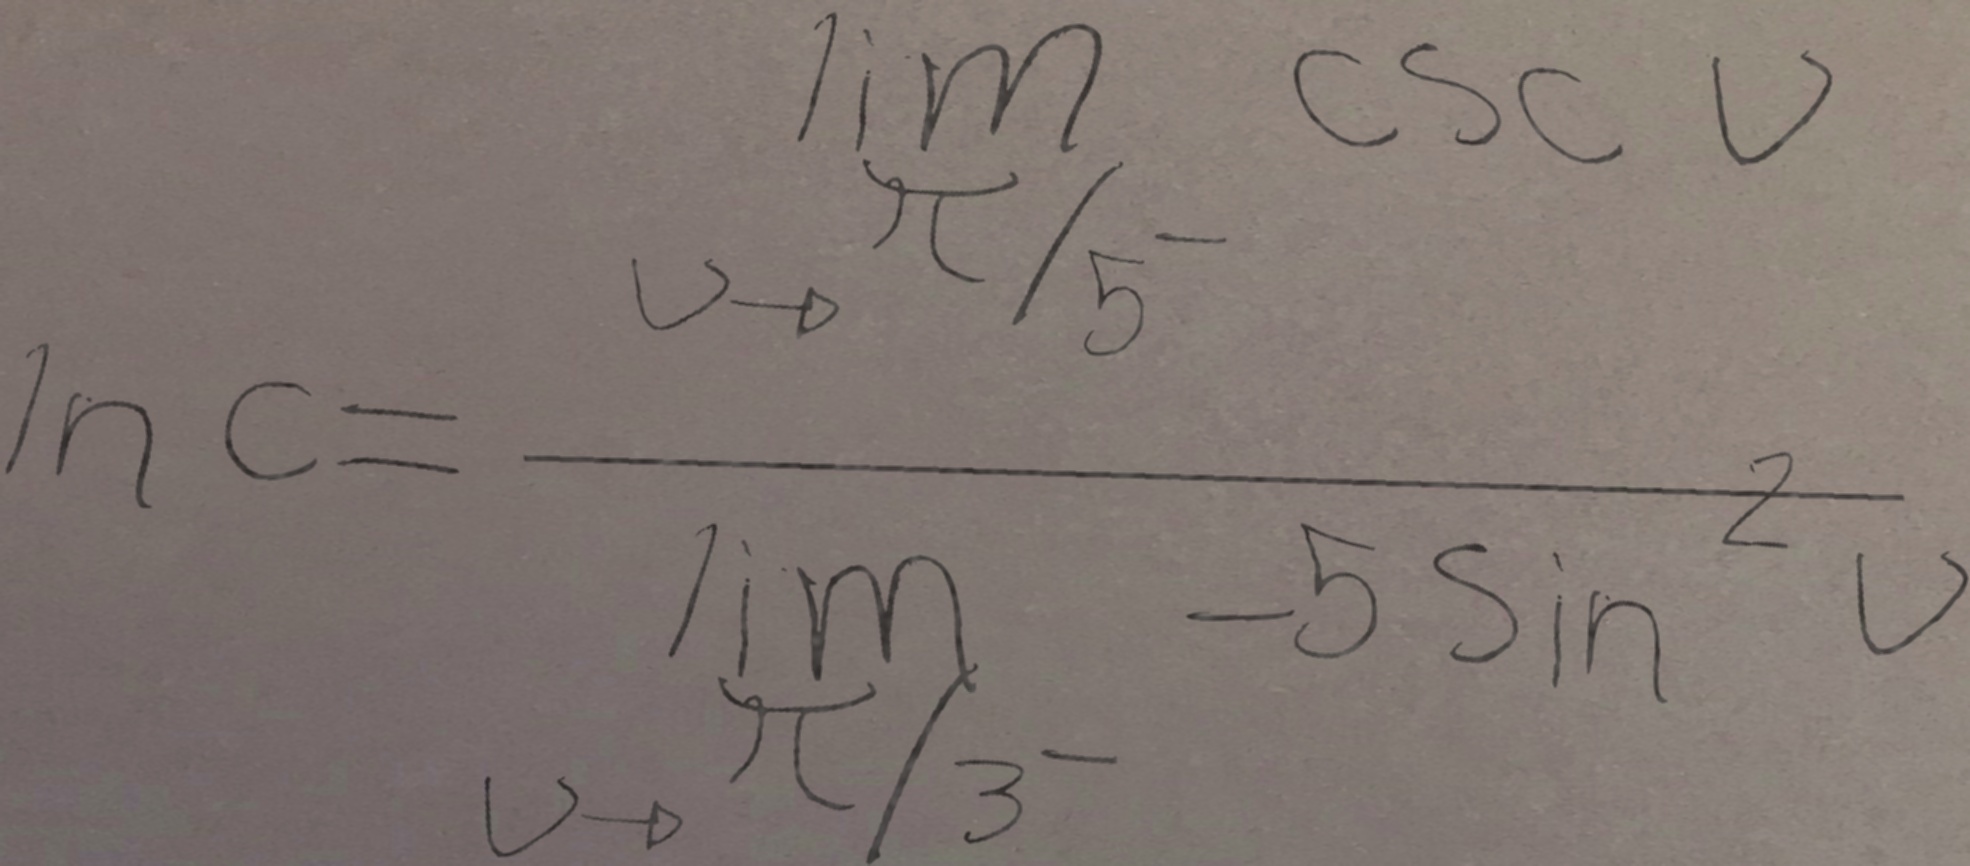 ln c = \frac{\lim_{v \to \pi/5^-} \csc v}{\lim_{v \to \pi/3^-} -5 \sin^2 v}